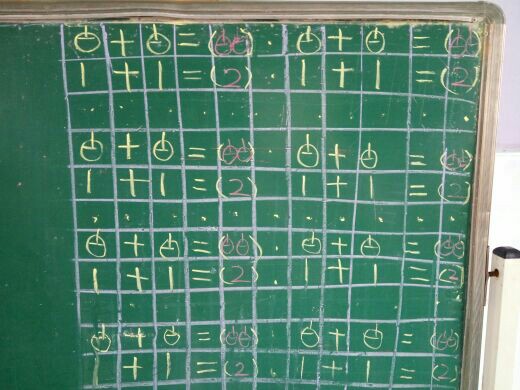 + = ( ) + = ( )
1 + 1 = (2) 1 + 1 = (2)
+ = ( ) + = ( )
1 + 1 = (2) 1 + 1 = (2)
+ = ( ) + = ( )
1 + 1 = (2) 1 + 1 = (2)
+ = ( ) + = ( )
1 + 1 = (2) 1 + 1 = (2)